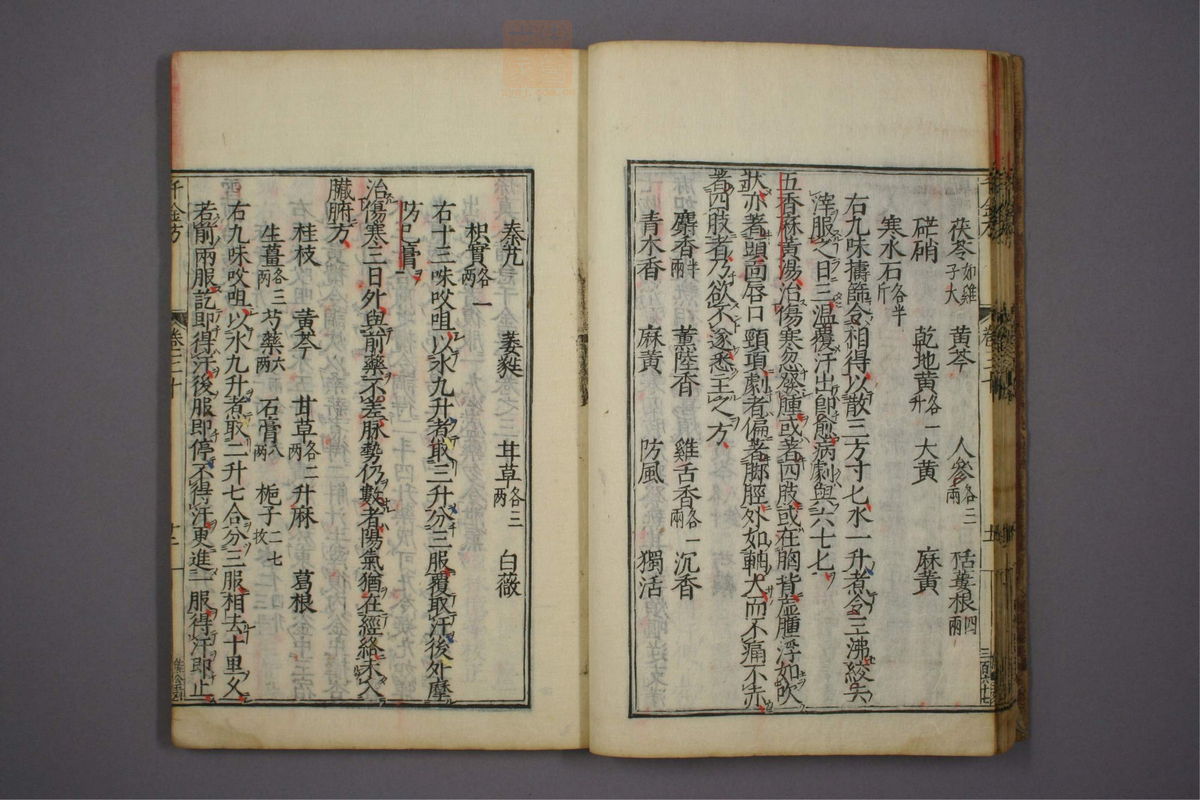 茯苓如雞子大 黃芩 人參各三兩 栝蔞根四兩
硭硝 乾地黃各一升 大黃 麻黃
寒水石各半斤
右九味擣篩令相得以散三方寸匕水一升煮令三沸絞去
滓服之日三温覆汗出即愈病劇與六七匕
五香麻黃湯治傷寒忽發腫或著四肢或在胸背虚腫浮如吹
狀亦著頭面唇口頸項劇者偏著脚脛外如軸大而不痛不赤
著四肢者乃欲不遂悉主之方
麝香半兩 薰陸香 雞舌香各一兩 沉香
青木香 麻黃 防風 獨活
秦艽 萎蕤 甘草各三兩 白薇
枳實各一兩
右十三味㕮咀以水九升煮取三升分三服覆取汗後外摩
防己膏
治傷寒三日外與前藥不差脉勢仍數者陽氣猶在經絡未入
臟腑方
桂枝 黃芩 甘草各二兩 升麻 葛根
生薑各三兩 芍藥六兩 石膏八兩 梔子二七枚
右九味㕮咀以水九升煮取二升七合分三服相去十里又
若前兩服訖即得汗後服即停不得汗更進一服得汗即止
千金方 卷三十